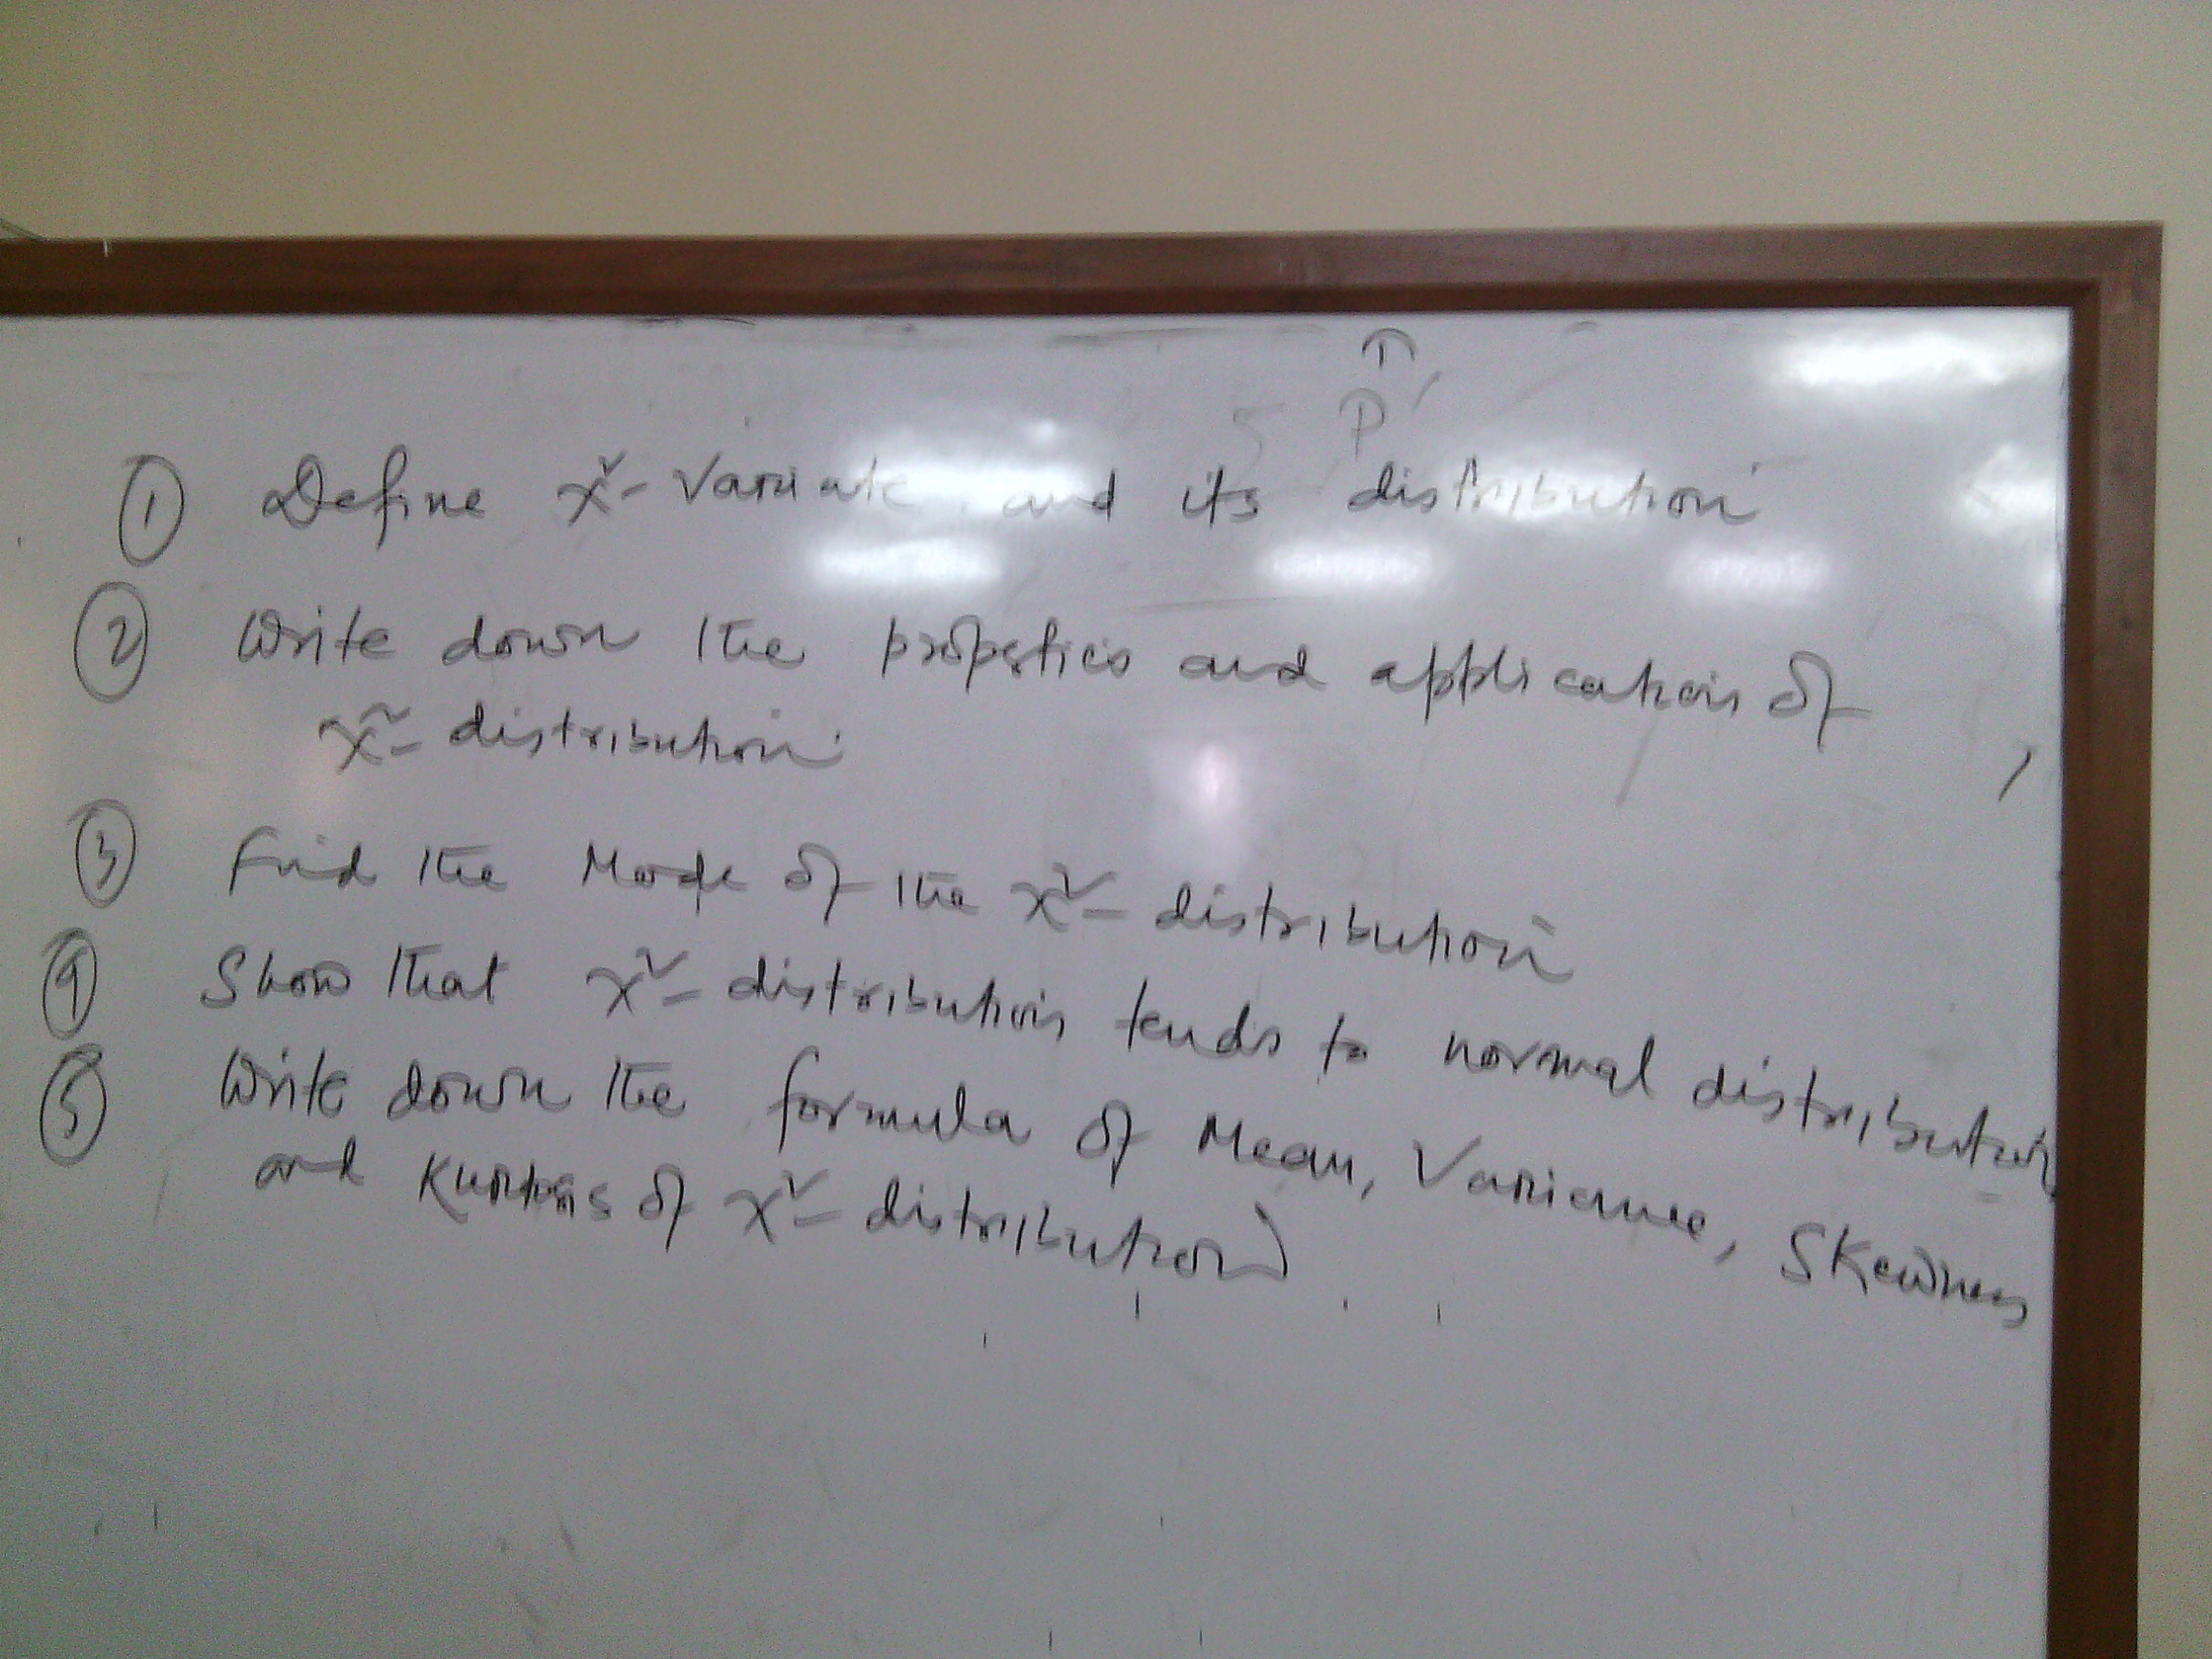 ① Define χ²-variate and its distribution
② Write down the properties and application of
χ²-distribution.
③ Find the Mode of the χ²-distribution
④ Show that χ²-distribution tends to normal distribution
⑤ Write down the formula of Mean, Variance, Skewness
and Kurtosis of χ²-distribution